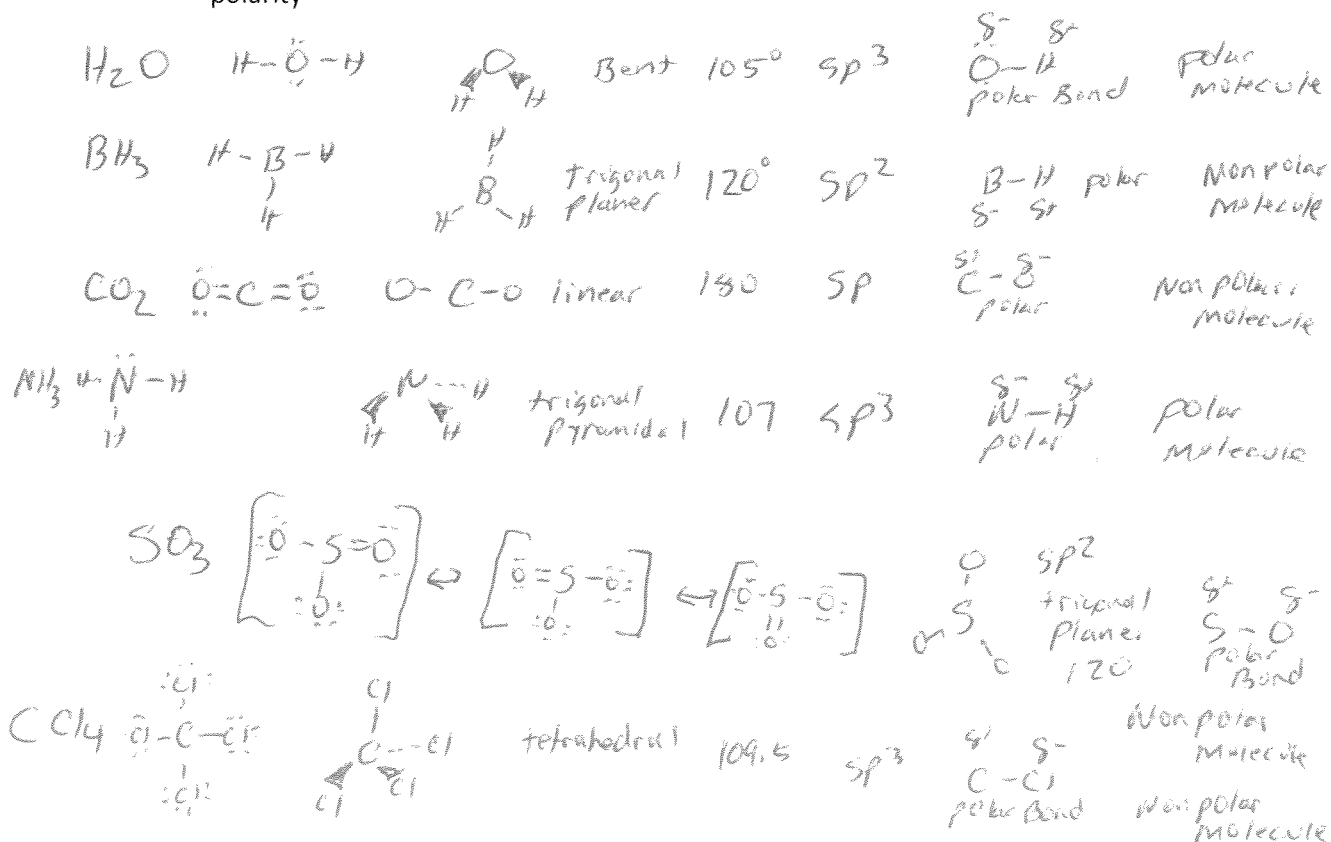 polarity
H₂O H-Ö-H O H H Bent 105° sp³ δ- δ+ O-H polar Bond polar molecule
BH₃ H-B-H H H B H H trigonal planer 120° sp² B-H polar δ- δ+ Nonpolar Molecule
CO₂ O=C=O O-C-O linear 180 sp δ+ δ- C-O polar Nonpolar molecule
NH₃ H-N-H H N H H H trigonal pyramidal 107 sp³ δ- δ+ N-H polar polar molecule
SO₃ [O-S=O O] ↔ [O=S-O O] ↔ [O-S-O O] O S O O sp² trigonal planer 120 δ+ δ- S-O polar Bond Nonpolar Molecule
CCl4 Cl Cl-C-Cl Cl Cl C Cl Cl Cl tetrahedral 109.5 sp³ δ+ δ- C-Cl polar Bond Nonpolar Molecule